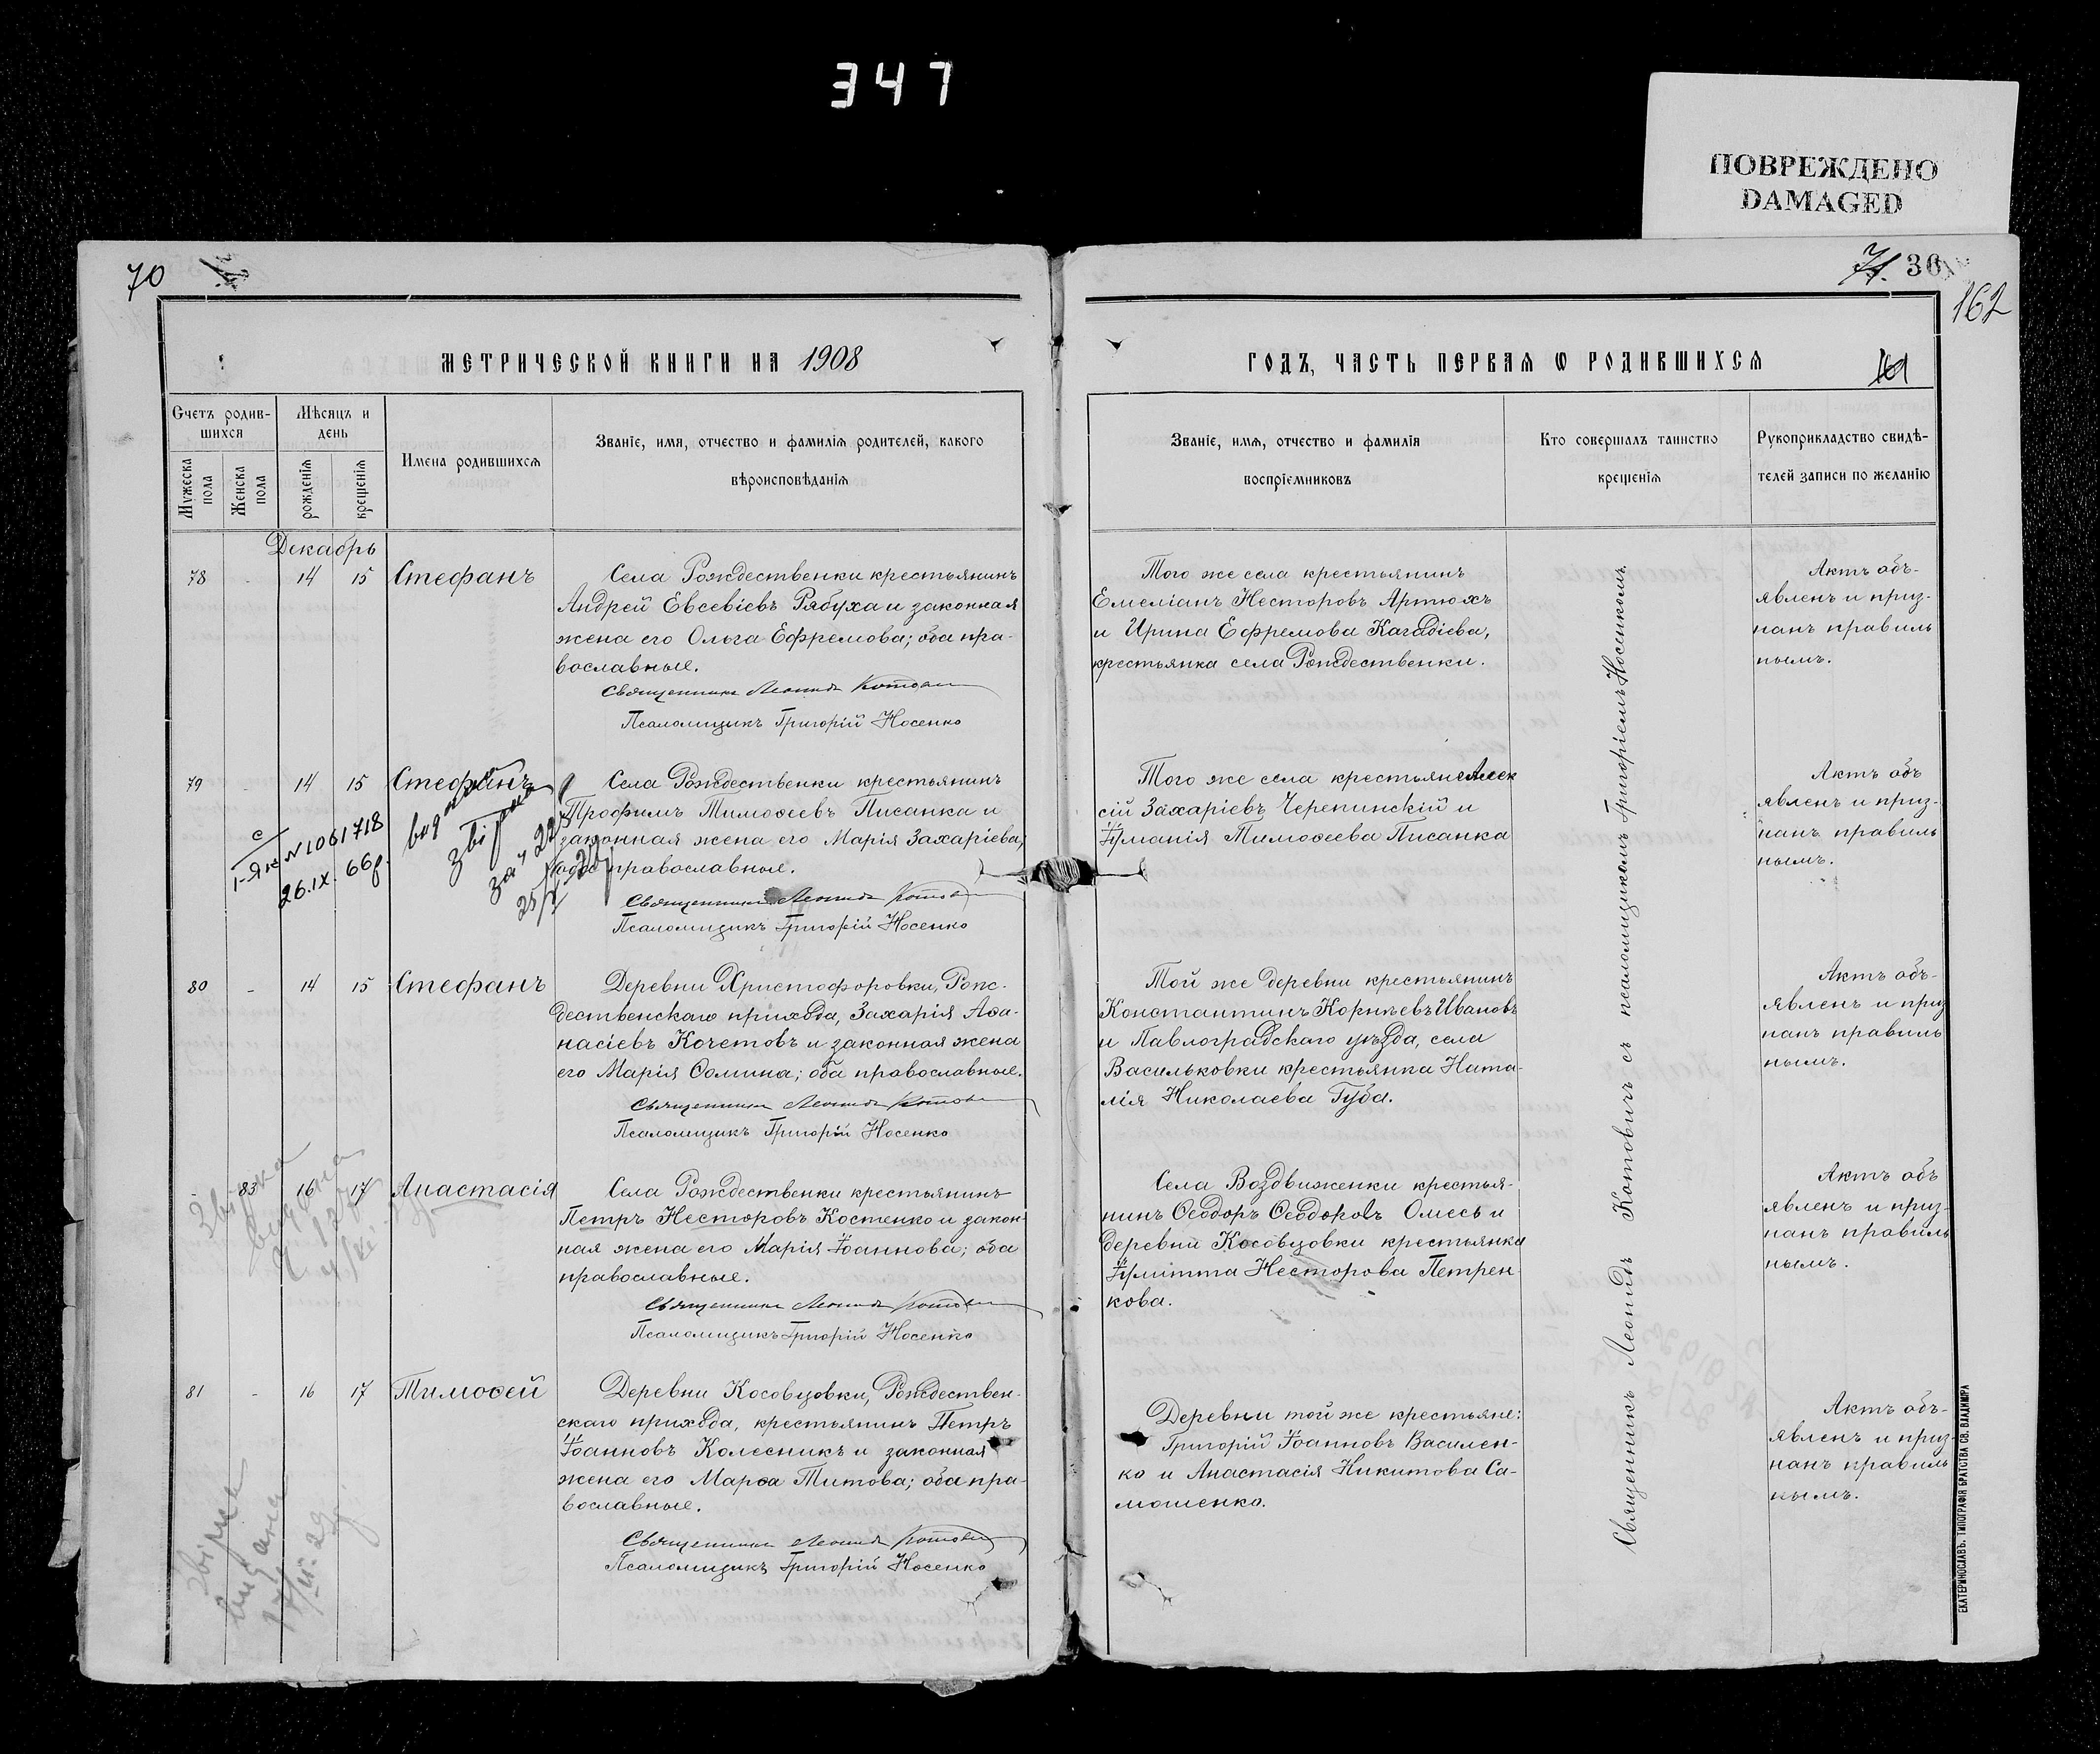 347
ПОВРЕЖДЕНО
DAMAGED
70
71. 30
162
МЕТРИЧЕСКОЙ КНИГИ НА 1908
ГОДЪ, ЧАСТЬ ПЕРВАЯ Ѡ РОДИВШИХСЯ
161
Счетъ родив-
шихся
Мѣсяцъ и
день
Мужеска
пола
Женска
пола
рожденія
крещенія
Имена родившихся
Званіе, имя, отчество и фамилія родителей, какого
вѣроисповѣданія
Званіе, имя, отчество и фамилія
воспріемниковъ
Кто совершалъ таинство
крещенія
Рукоприкладство свидѣ-
телей записи по желанію
Декабрь
78 - 14 15 Стефанъ
Села Рождественки крестьянинъ
Андрей Евсевіевъ Рябуха и законная
жена его Ольга Ефремова; оба пра-
вославные.
Священникъ Леонидъ Котович
Псаломщикъ Григорій Носенко
Того же села крестьянинъ
Емеліанъ Несторовъ Артюхъ
и Ирина Ефремова Кагадіева,
крестьянка села Рождественки.
Актъ объ-
явленъ и приз-
нанъ правиль
нымъ.
79 - 14 15 Стефанъ
Села Рождественки крестьянинъ
Трофимъ Тимоѳеевъ Писанка и
законная жена его Марія Захаріева;
оба православные.
Священникъ Леонидъ Котович
Псаломщикъ Григорій Носенко
I-ЯК N 1061718
26.IX. 66р.
Того же села крестьяне Алек
сій Захаріевъ Черепинскій и
Іуліанія Тимоѳеева Писанка
Актъ объ
явленъ и приз-
нанъ правиль
нымъ.
80 - 14 15 Стефанъ
Деревни Христофоровки, Рож-
дественскаго прихода, Захарія Аѳа-
насіевъ Кочетовъ и законная жена
его Марія Ѳомина; оба православные.
Священникъ Леонидъ Котович
Псаломщикъ Григорій Носенко
Той же деревни крестьянинъ
Константинъ Корнѣевъ Ивановъ
и Павлоградскаго уѣзда, села
Васильковки крестьянка Ната-
лія Николаева Губа.
Актъ объ-
явленъ и приз
нанъ правиль
нымъ.
- 83 16 17 Анастасія
Села Рождественки крестьянинъ
Петръ Несторовъ Костенко и закон-
ная жена его Марія Іоаннова; оба
православные.
Священникъ Леонидъ Котович
Псаломщикъ Григорій Носенко
Села Воздвиженки крестья-
нинъ Ѳеодоръ Ѳеодоровъ Олесь и
деревни Косовцовки крестьянка
Іулитта Несторова Петрен
кова.
Актъ объ
явленъ и приз-
нанъ правиль
нымъ.
81 - 16 17 Тимоѳей
Деревни Косовцовки, Рождествен-
скаго прихода, крестьянинъ Петръ
Іоанновъ Колесникъ и законная
жена его Марѳа Титова; оба пра-
вославные.
Священникъ Леонидъ Котович
Псаломщикъ Григорій Носенко
Деревни той же крестьяне:
Григорій Іоанновъ Василен-
ко и Анастасія Никитова Са-
мошенко.
Актъ объ-
явленъ и приз-
нанъ правиль
нымъ.
Священникъ Леонидъ Котовичъ съ псаломщикомъ Григоріемъ Носенкомъ
ЕКАТЕРИНОСЛАВЪ. ТИПОГРАФІЯ БРАТСТВА СВ. ВЛАДИМІРА